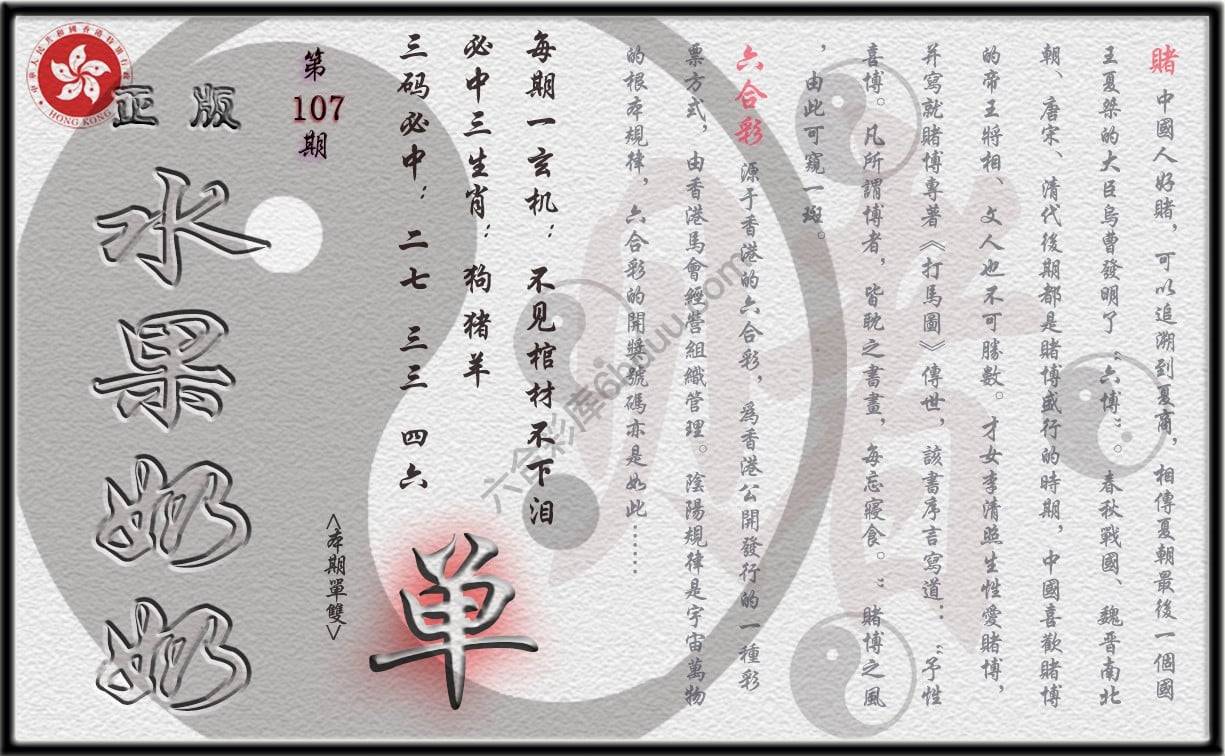 賭 中國人好賭，可以追溯到夏商，相傳夏朝最後一個國
王夏桀的大臣烏曹發明了“六博”。春秋戰國、魏晉南北
朝、唐宋、清代後期都是賭博盛行的時期，中國喜歡賭博
的帝王將相、文人也不可勝數。才女李清照生性愛賭博，
并寫就賭博專著《打馬圖》傳世，該書序言寫道：“予性
喜博。凡所謂博者，皆耽之書畫，每忘寢食。”賭博之風
，由此可窺一斑。
六合彩 源于香港的六合彩，為香港公開發行的一種彩
票方式，由香港馬會經營組織管理。陰陽規律是宇宙萬物
的根本規律，六合彩的開獎號碼亦是如此……
每期一玄机：不见棺材不下泪
必中三生肖：狗猪羊
三码必中：二七 三三 四六
第
107
期
<本期單雙>
单
正版
水果奶奶
中華人民共和國香港特別行政區
HONG KONG
六合彩库6hduu.com